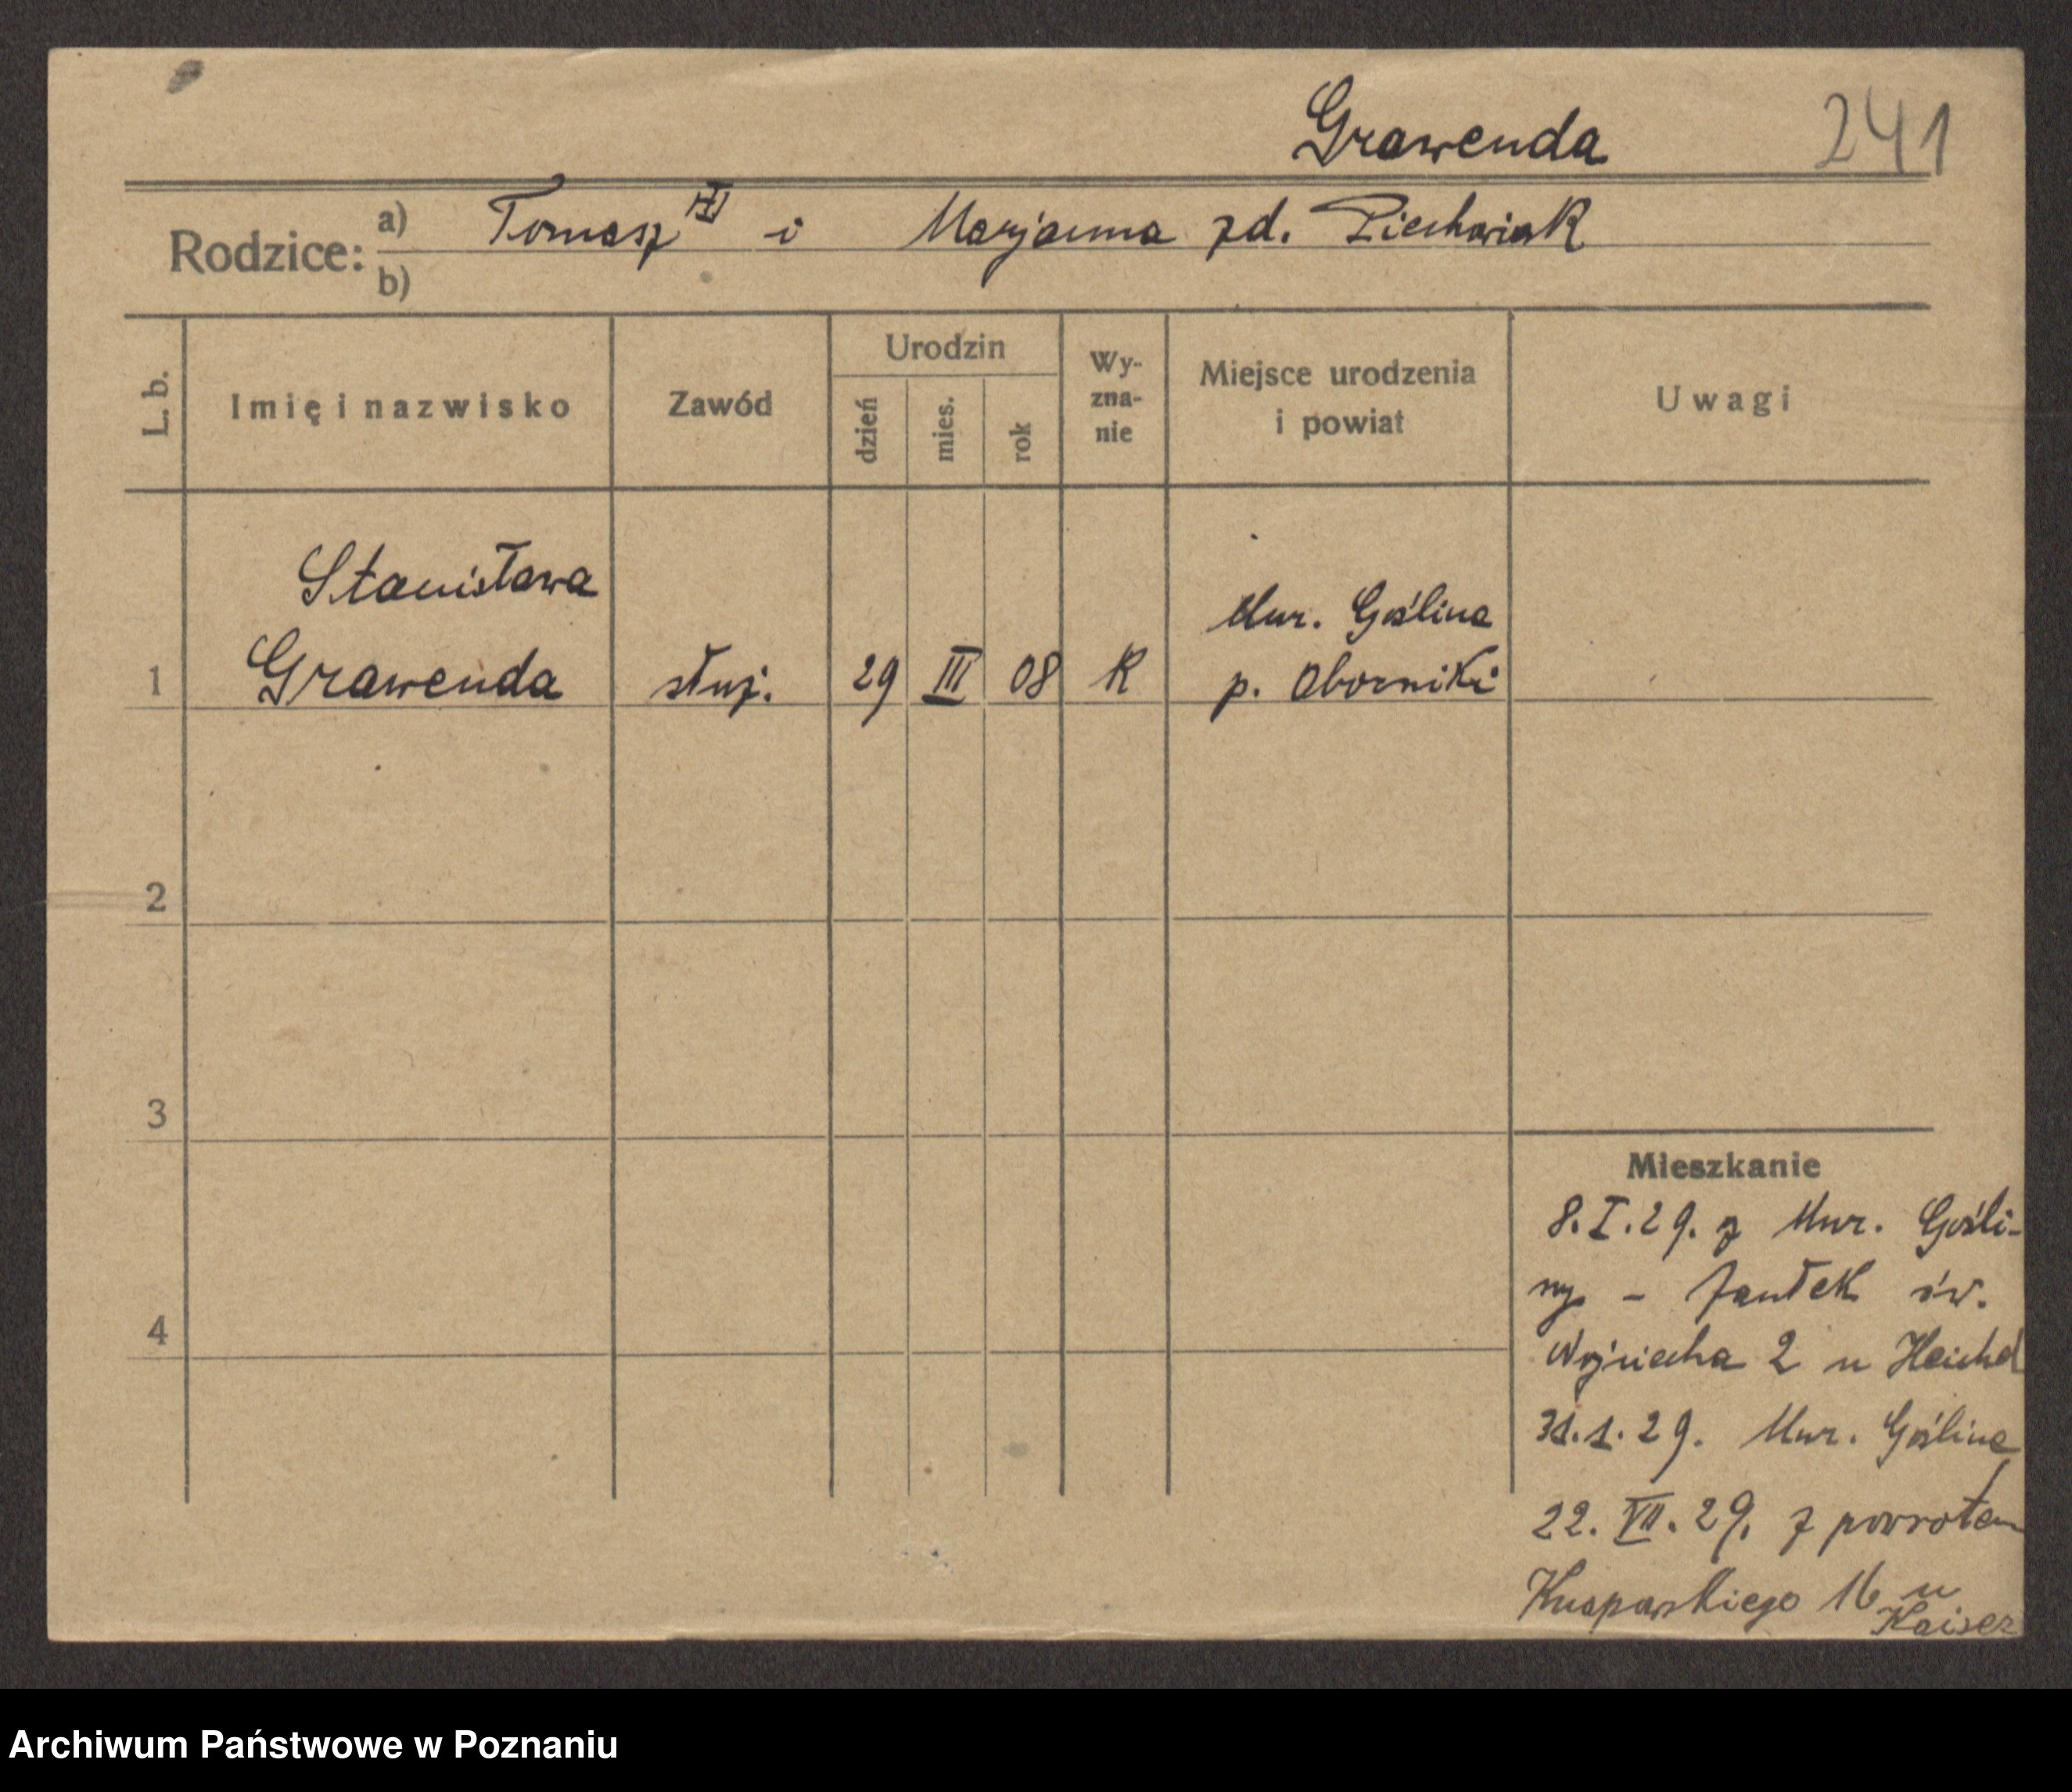 Grawenda 241
Rodzice: a) Tomasz i Marjanna zd. Piechowiak
b)
L. b. Imię i nazwisko Zawód Urodzin dzień mies. rok Wy-zna-nie Miejsce urodzenia i powiat Uwagi
Stanisława
Mur. Goślina
1 Grawenda służ. 29 III 08 R p. Oborniki
2
3
Mieszkanie
8. I. 29. z Mur. Gośli-
ny - Zaułek św.
4
Wojciecha 2 u Heichel
31. 1. 29. Mur. Goślina
22. VII. 29. z powrotem
Knapowskiego 16 u
Kaiser
Archiwum Państwowe w Poznaniu